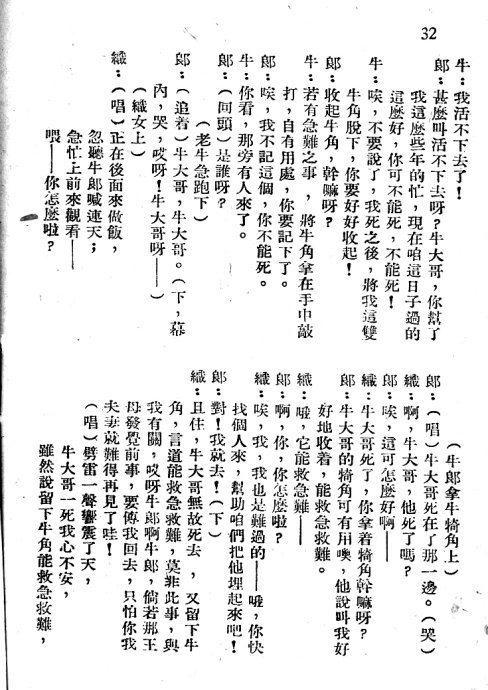 32
牛：我活不下去了！
郎：甚麼叫活不下去呀？牛大哥，你幫了
我這麼些年的忙，現在咱這日子過的
這麼好，你可不能死，不能死！
牛：唉，不要說了，我死之後，將我這雙
牛角脫下，你要好好收起！
郎：收起牛角，幹嘛呀？
牛：若有急難之事，將牛角拿在手中敲
打，自有用處，你要記下了。
郎：唉，我不記這個，你不能死。
牛：你看，那旁有人來了。
郎：（回頭）是誰呀？
（老牛急跑下）
郎：（追着）牛大哥，牛大哥。（下，幕
內，哭，哎呀！牛大哥呀——）
（織女上）
織：（唱）正在後面來做飯，
忽聽牛郎喊連天；
急忙上前來觀看——
喂——你怎麼啦？
（牛郎拿牛犄角上）
郎：（唱）牛大哥死在了那一邊。（哭）
織：啊，牛大哥，他死了嗎？
郎：唉，這可怎麼好啊！
織：牛大哥死了，你拿着犄角幹嘛呀？
郎：牛大哥的犄角可有用噢，他說叫我好
好地收着，能救急救難。
織：哦，它能救急難——
郎：啊，你，你怎麼啦？
織：唉，我，我也是難過的——哦，你快
找個人來，幫助咱們把他埋起來吧！
郎：對！我就去！（下）
織：且住，牛大哥無故死去，又留下牛
角，言道能救急救難，莫非此事，與
我有關，哎呀牛郎啊牛郎，倘若那王
母發覺前事，要傳我回去，只怕你我
夫妻就難得再見了哇！
（唱）劈雷一聲響震了天，
牛大哥一死我心不安，
雖然說留下牛角能救急救難，